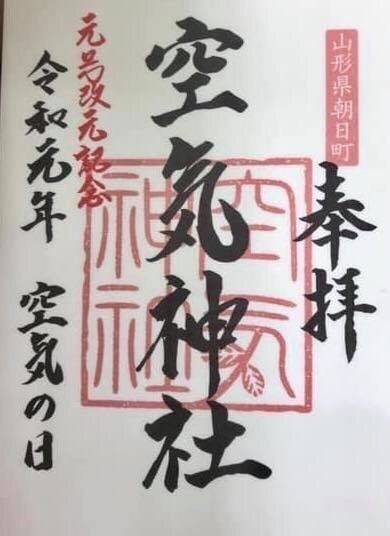 山形県朝日町
奉拝
空気神社
空気神社
元号改元記念
令和元年 空気の日